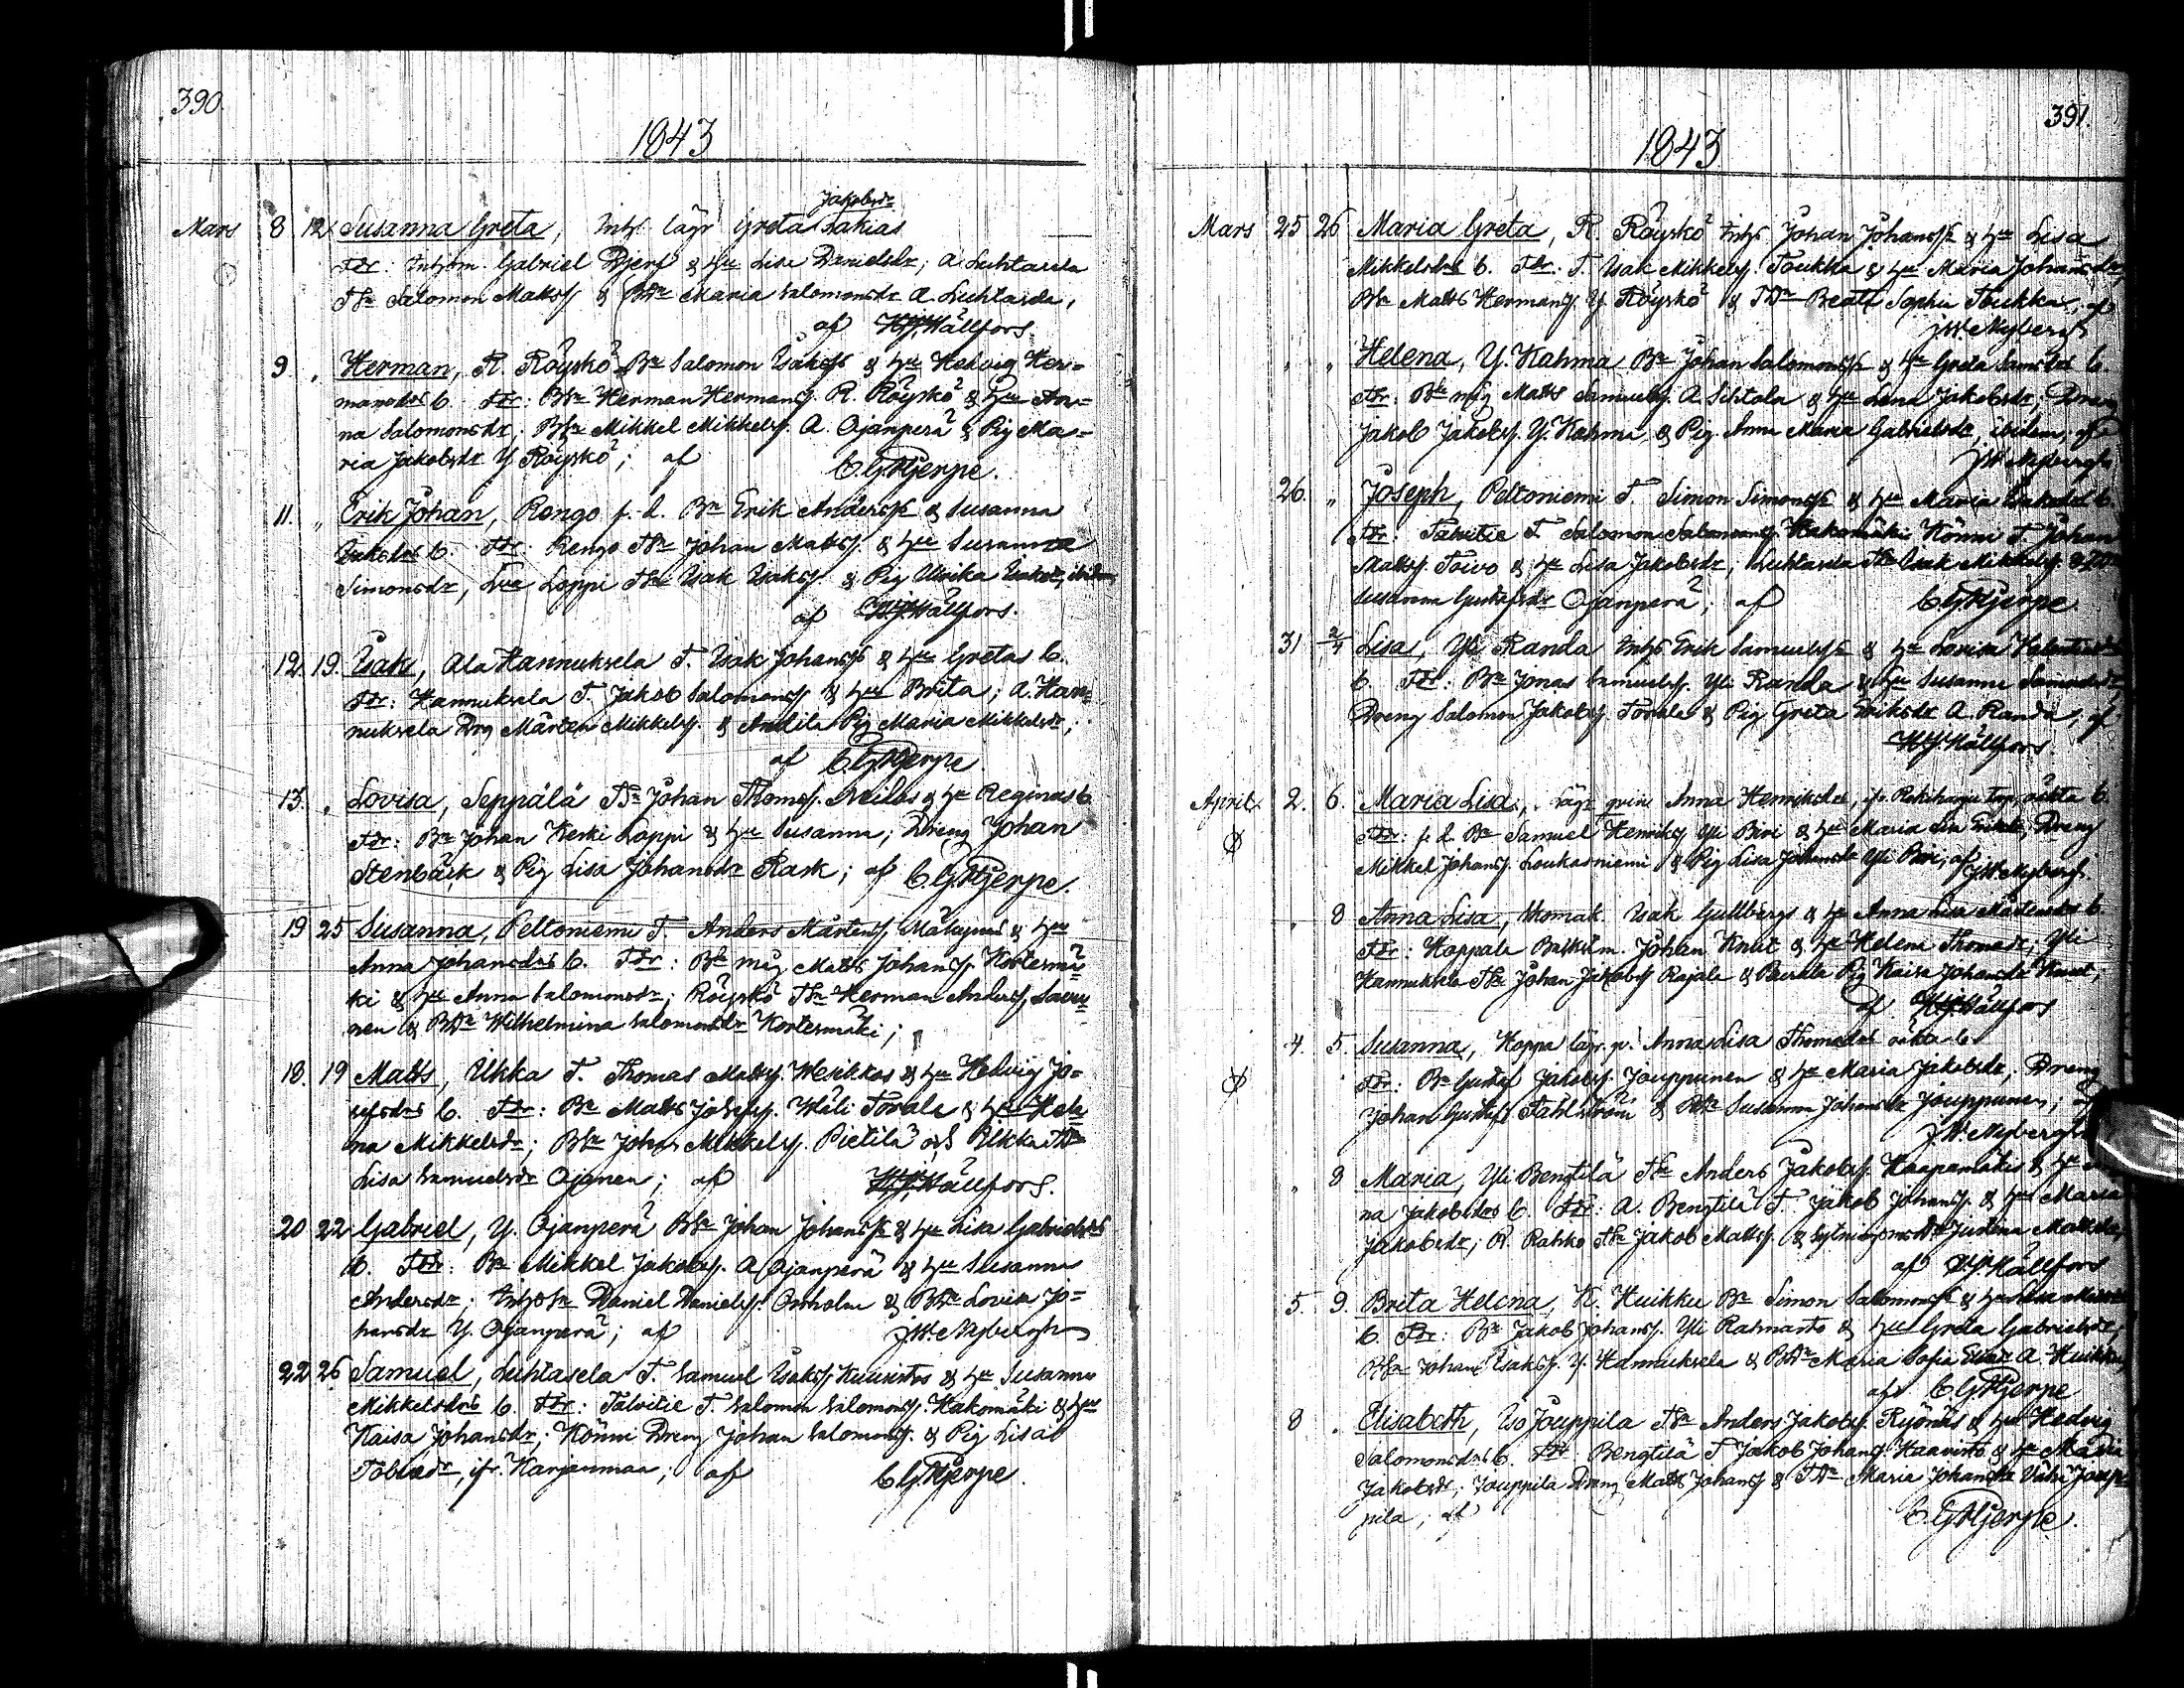 390.
1843
Jakobsdr
Mars 8 12 Susanna Greta, Inhs lägr Greta Lakias
Fdr: Inhsm. Gabriel Djerf & Hu Lisa Danielsdr; A. Luhtasela
TSn Salomon Matts. & BDr Maria Salomonsdr A. Luhtasela,
af HJHällfors.
9 " Herman, R. Röyskö Bn Salomon Isakss & Hu Hedvig Her=
mansdrs b. Fdr: BSn Herman Hermans. R. Röyskö & Hu An=
na Salomonsdr; BSn Mikkel Mikkels. A. Ojanperä & Pig Ma=
ria Jakobsdr Y. Röyskö; af C.G.Hjerpe.
11. " Erik Johan, Rengo f.d. Bn Erik Anderss & Susanna
Isaksdrs b. Fdr: Rengo TSn Johan Matts. & Hu Susanna
Simonsdr, Loppi TSn Isak Isaks. & Pig Ulrika Isaksdr, ibidem,
af HJHällfors.
12. 19. Isak, Ala Hannuksela T. Isak Johanss & Hu Gretas b.
Fdr: Hannuksela T. Jakob Salomons. & Hu Brita; A. Han=
nuksela Drg Mårten Mikkels. & Andila Pig Maria Mikkelsdr;
af C.G.Hjerpe.
13. " Lovisa, Seppälä Johan Thomas. & Hu Reginas b.
Fdr: Bn Johan Keski Loppi & Hu Susanna; Dreng Johan
Stenbäck & Pig Lisa Johansdr Rask; af C.G.Hjerpe.
19 25 Susanna, Peltoniemi T. Anders Mårtens. & Hu
Anna Johansdrs b. Fdr: Matts Johans. Kortesmä
ki & Hu Anna Salomonsdr; Röyskö TSn Herman Anders.
nen & BDr Wilhelmina Salomonsdr Kortesmäki;
18. 19 Matts, Ukka T. Thomas Matts. & Hu Hedvig Jo=
sefsdrs b. Fdr: Bn Matts Josefs. Wäli Torala & Hu Hele
na Mikkelsdr; BSn Johan Mikkels. Pietilä och TDr
Lisa Samuelsdr Ojanen; af HJHällfors.
20 22 Gabriel, Y. Ojanperä BSn Johan Johanss & Hu Lisa Gabrielsdrs
b. Fdr: Bn Mikkel Jakobs. A Ojanperä & Hu Susanna
Andersdr; Daniel Daniels. & BDr Lovisa Jo=
hansdr Y. Ojanperä; af JW.Nybergh
22 26 Samuel, Luhtasela T. Samuel Isaks. Kuivistos & Hu Susanna
Mikkelsdrs b. Fdr: Talvitie T. Salomon Salomons. Hakomäki & Hu
Kaisa Johansdr; Könni Dreng Johan Salomons. & Pig Lisa
Tobiasdr, ifr. Karjanmaa; af C.G.Hjerpe.
391.
1843
Mars 25 26 Maria Greta, R. Röyskö Inhs Johan Johanss & Hu Lisa
Mikkelsdrs b. Fdr: T. Isak Mikkels. Toukka & Hu Maria Johansdr,
BSn Matts Hermans. Y. Röyskö & TDr Beata Sophia Toukka, af
JW.Nybergh
" " Helena, Y. Kahma Bn Johan Salomonss & Hu Greta b.
Fdr: Matts Samuels. A. Sihtola & Hu Lena Jakobsdr; Dreng
Jakob Jakobs. Y. Kahma & Pig Anna Maria Gabrielsdr ibidem; af
JW.Nybergh
26. " Joseph, Peltoniemi T. Simon Simonss & Hu Maria Isaksdrs b.
Fdr: Talvitie T. Salomon Salomons. Hakomäki Könni T. Johan
Matts. Toivo & Hu Lisa Jakobsdr; Luhtasela TSn Isak Mikkels. & TDr
Susanna Gustafsdr Ojanperä; af C.G.Hjerpe
31 2/4 Lisa, Yli Randa Inhs Erik Samuelss & Hu Lovisa
b. Fdr: Bn Jonas Samuels. Yli Randa & Hu Susanna
Dreng Salomon Jakobs. Torala & Pig Greta Eriksdr A. Randa, af
HJHällfors
April 2. 6. Maria Lisa, lägr qvin Anna Henriksdrs, oäkta b.
Fdr: f.d. Bn Samuel Henriks. Yli & Hu Maria Dreng
Mikkel Johans. Loukasniemi & Pig Lisa Johansdr Yli; af JW.Nybergh.
" 8 Anna Lisa, Isak Gullbergs & Hu Anna Lisa Mårtensdrs b.
Fdr: Hoppala Johan Knut & Hu Helena Thomasdr, Yli
Hannuksela TSn Johan Jakobs. Rajala & Pig Kaisa Johansdr Knut;
af HJHällfors
4. 5. Susanna, Koppa lägr. q. Anna Lisa Thomasdrs oäkta b.
Fdr: Bn Gustaf Jakobs. Jouppunen & Hu Maria Jakobsdr; Dreng
Johan Gustafs. Fahlström & BDr Susanna Johansdr Jouppunen; af
JW.Nybergh
" 8 Maria, Yli Bengtilä TSn Anders Jakobs. Haapamäkis & Hu
na Jakobsdrs b. Fdr: A. Bengtilä T. Jakob Johans. & Hu Maria
Jakobsdr; R. Rahko TSn Jakob Matts. & Justina Mattsdr,
af HJHällfors
5. 9. Brita Helena, K. Huikku Bn Simon Salomonss & Hu
b. Fdr: Bn Jakob Johans. Yli & Hu Greta Gabrielsdr,
BSn Johan Isaks. Y. Hannuksela & BDr Maria Sofia A. Huikku,
af C.G.Hjerpe
8 " Elisabeth, Iso Jouppila TSn Anders Jakobs. & Hu Hedvig
Salomonsdrs b. Fdr: Bengtilä T Jakob Johans. Haavisto & Hu Maria
Jakobsdr; Jouppila Dreng Matts Johans. & TDr Maria Johansdr Joup=
pila; af C.G.Hjerpe.